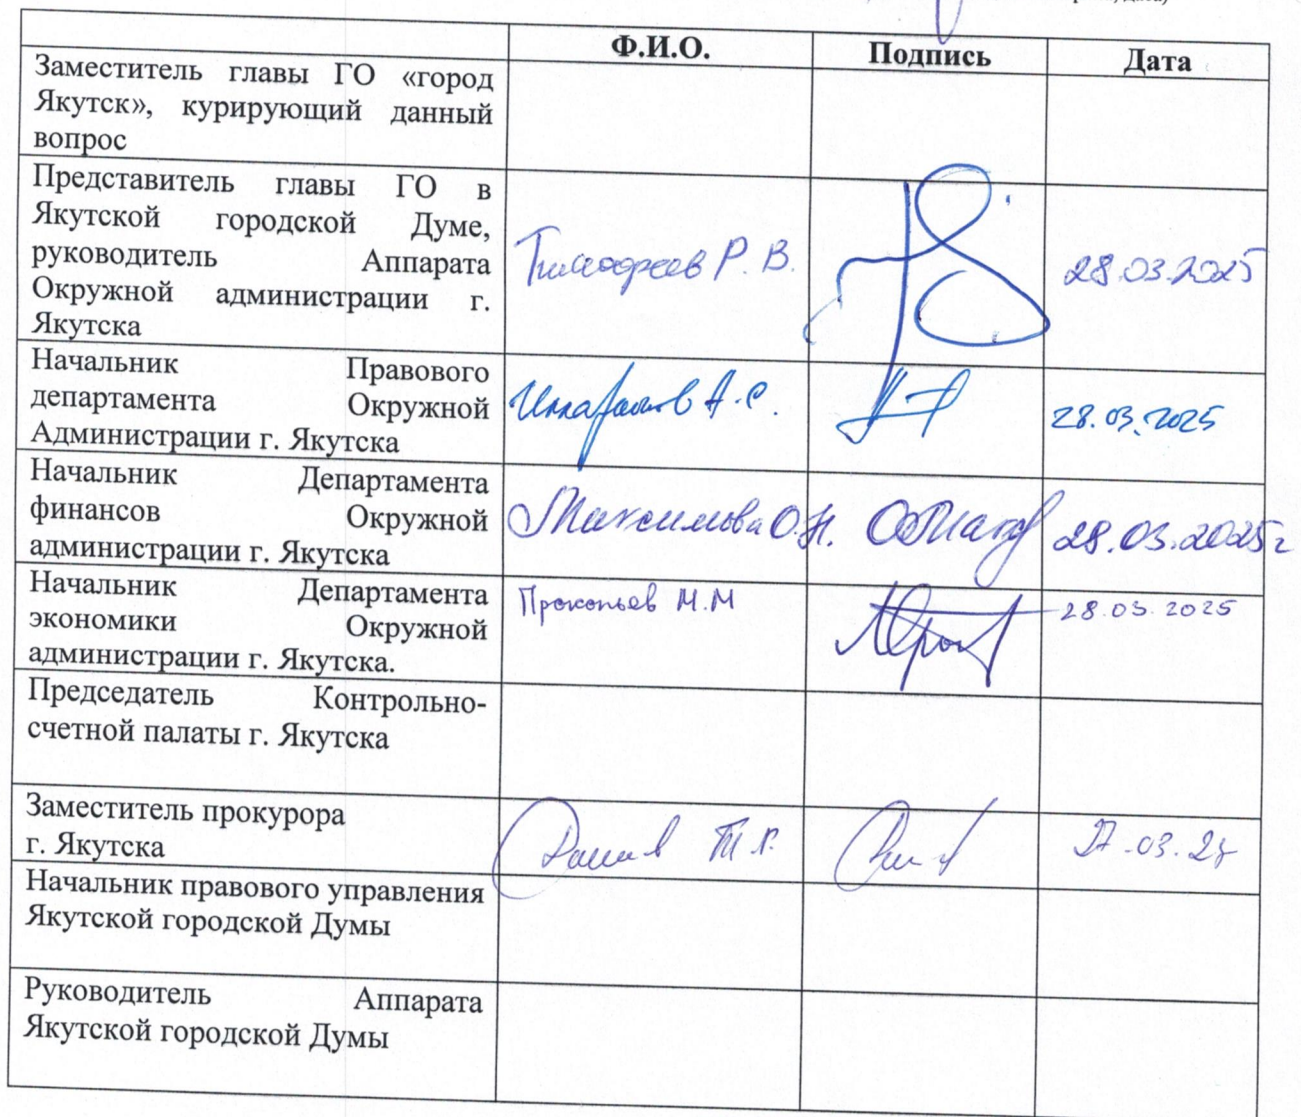 дата)
Ф.И.О. Подпись Дата
Заместитель главы ГО «город
Якутск», курирующий данный
вопрос
Представитель главы ГО в
Якутской городской Думе,
руководитель Аппарата
Окружной администрации г.
Якутска
Тимофеев Р. В. 28.03.2025
Начальник Правового
департамента Окружной
Администрации г. Якутска
А.С. 28.03.2025
Начальник Департамента
финансов Окружной
администрации г. Якутска
Максимова О.Н. 28.03.2025г
Начальник Департамента
экономики Окружной
администрации г. Якутска.
Прокопьев М.М 28.03.2025
Председатель Контрольно-
счетной палаты г. Якутска
Заместитель прокурора
г. Якутска
Начальник правового управления
Якутской городской Думы
Руководитель Аппарата
Якутской городской Думы